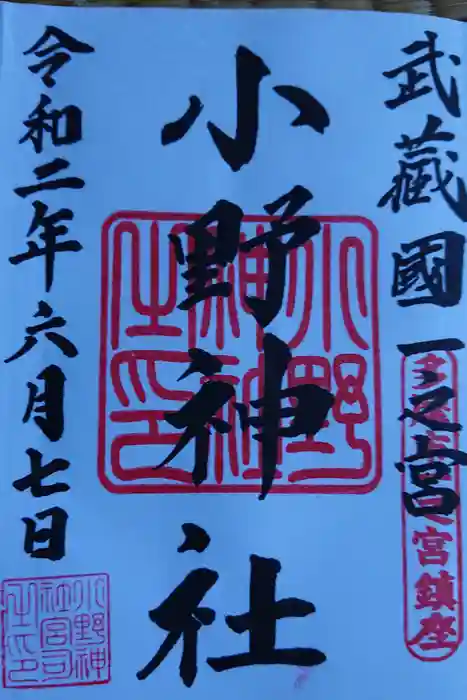 武藏國一之宮
宮鎮座
小野神社
小野
神社
之印
令和二年六月七日
小野神
社宮司
之印